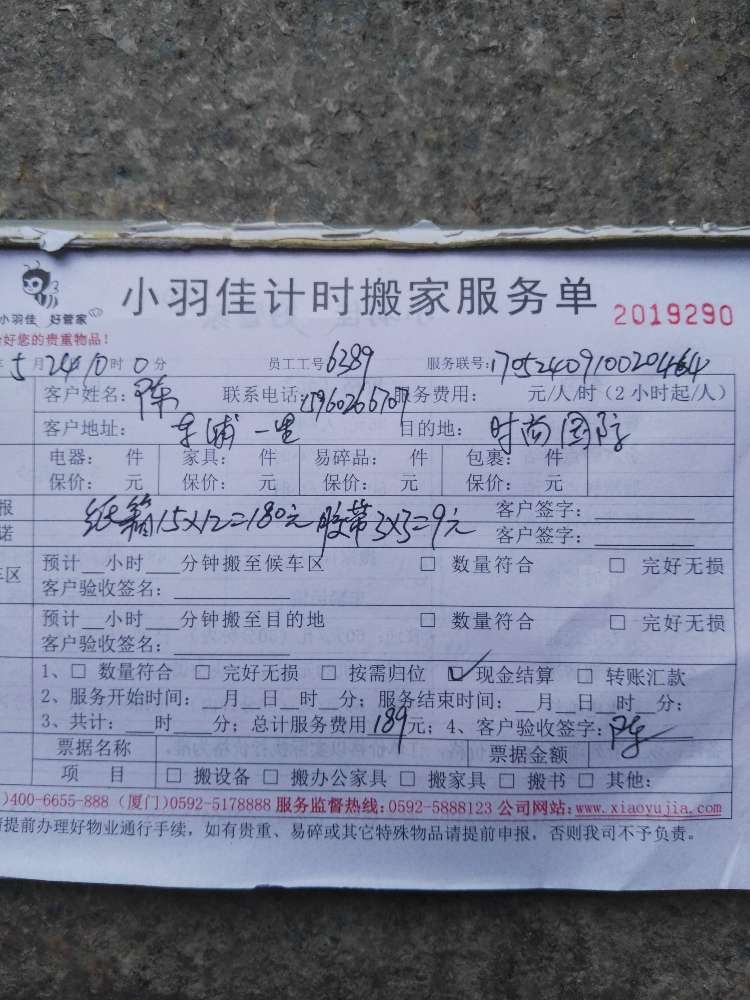 小羽佳计时搬家服务单 2019290
小羽佳 好管家
好您的贵重物品！
5月24 10时0分 员工工号6389 服务联号:17052409100200464
客户姓名:陈 联系电话:15960266707 服务费用: 元/人/时（2小时起/人）
客户地址: 东浦一里 目的地: 时尚国际
电器: 件 家具: 件 易碎品: 件 包裹: 件
保价: 元 保价: 元 保价: 元 保价: 元
报 客户签字:
纸箱15×12=180元 胶带3×3=9元
诺 客户签字:
车区 预计__小时___分钟搬至候车区 □ 数量符合 □ 完好无损
客户验收签名:
预计__小时___分钟搬至目的地 □ 数量符合 □ 完好无损
客户验收签名:
1、□ 数量符合 □ 完好无损 □ 按需归位 ☑ 现金结算 □ 转账汇款
2、服务开始时间: __月__日__时__分; 服务结束时间: __月__日__时__分;
3、共计: ___时___分; 总计服务费用189元; 4、客户验收签字:陈
票据名称 票据金额
项 目 □ 搬设备 □ 搬办公家具 □ 搬家具 □ 搬书 □ 其他:
)400-6655-888（厦门)0592-5178888 服务监督热线:0592-5888123 公司网站:www.xiaoyujia.com
提前办理好物业通行手续，如有贵重、易碎或其它特殊物品请提前申报，否则我司不予负责。